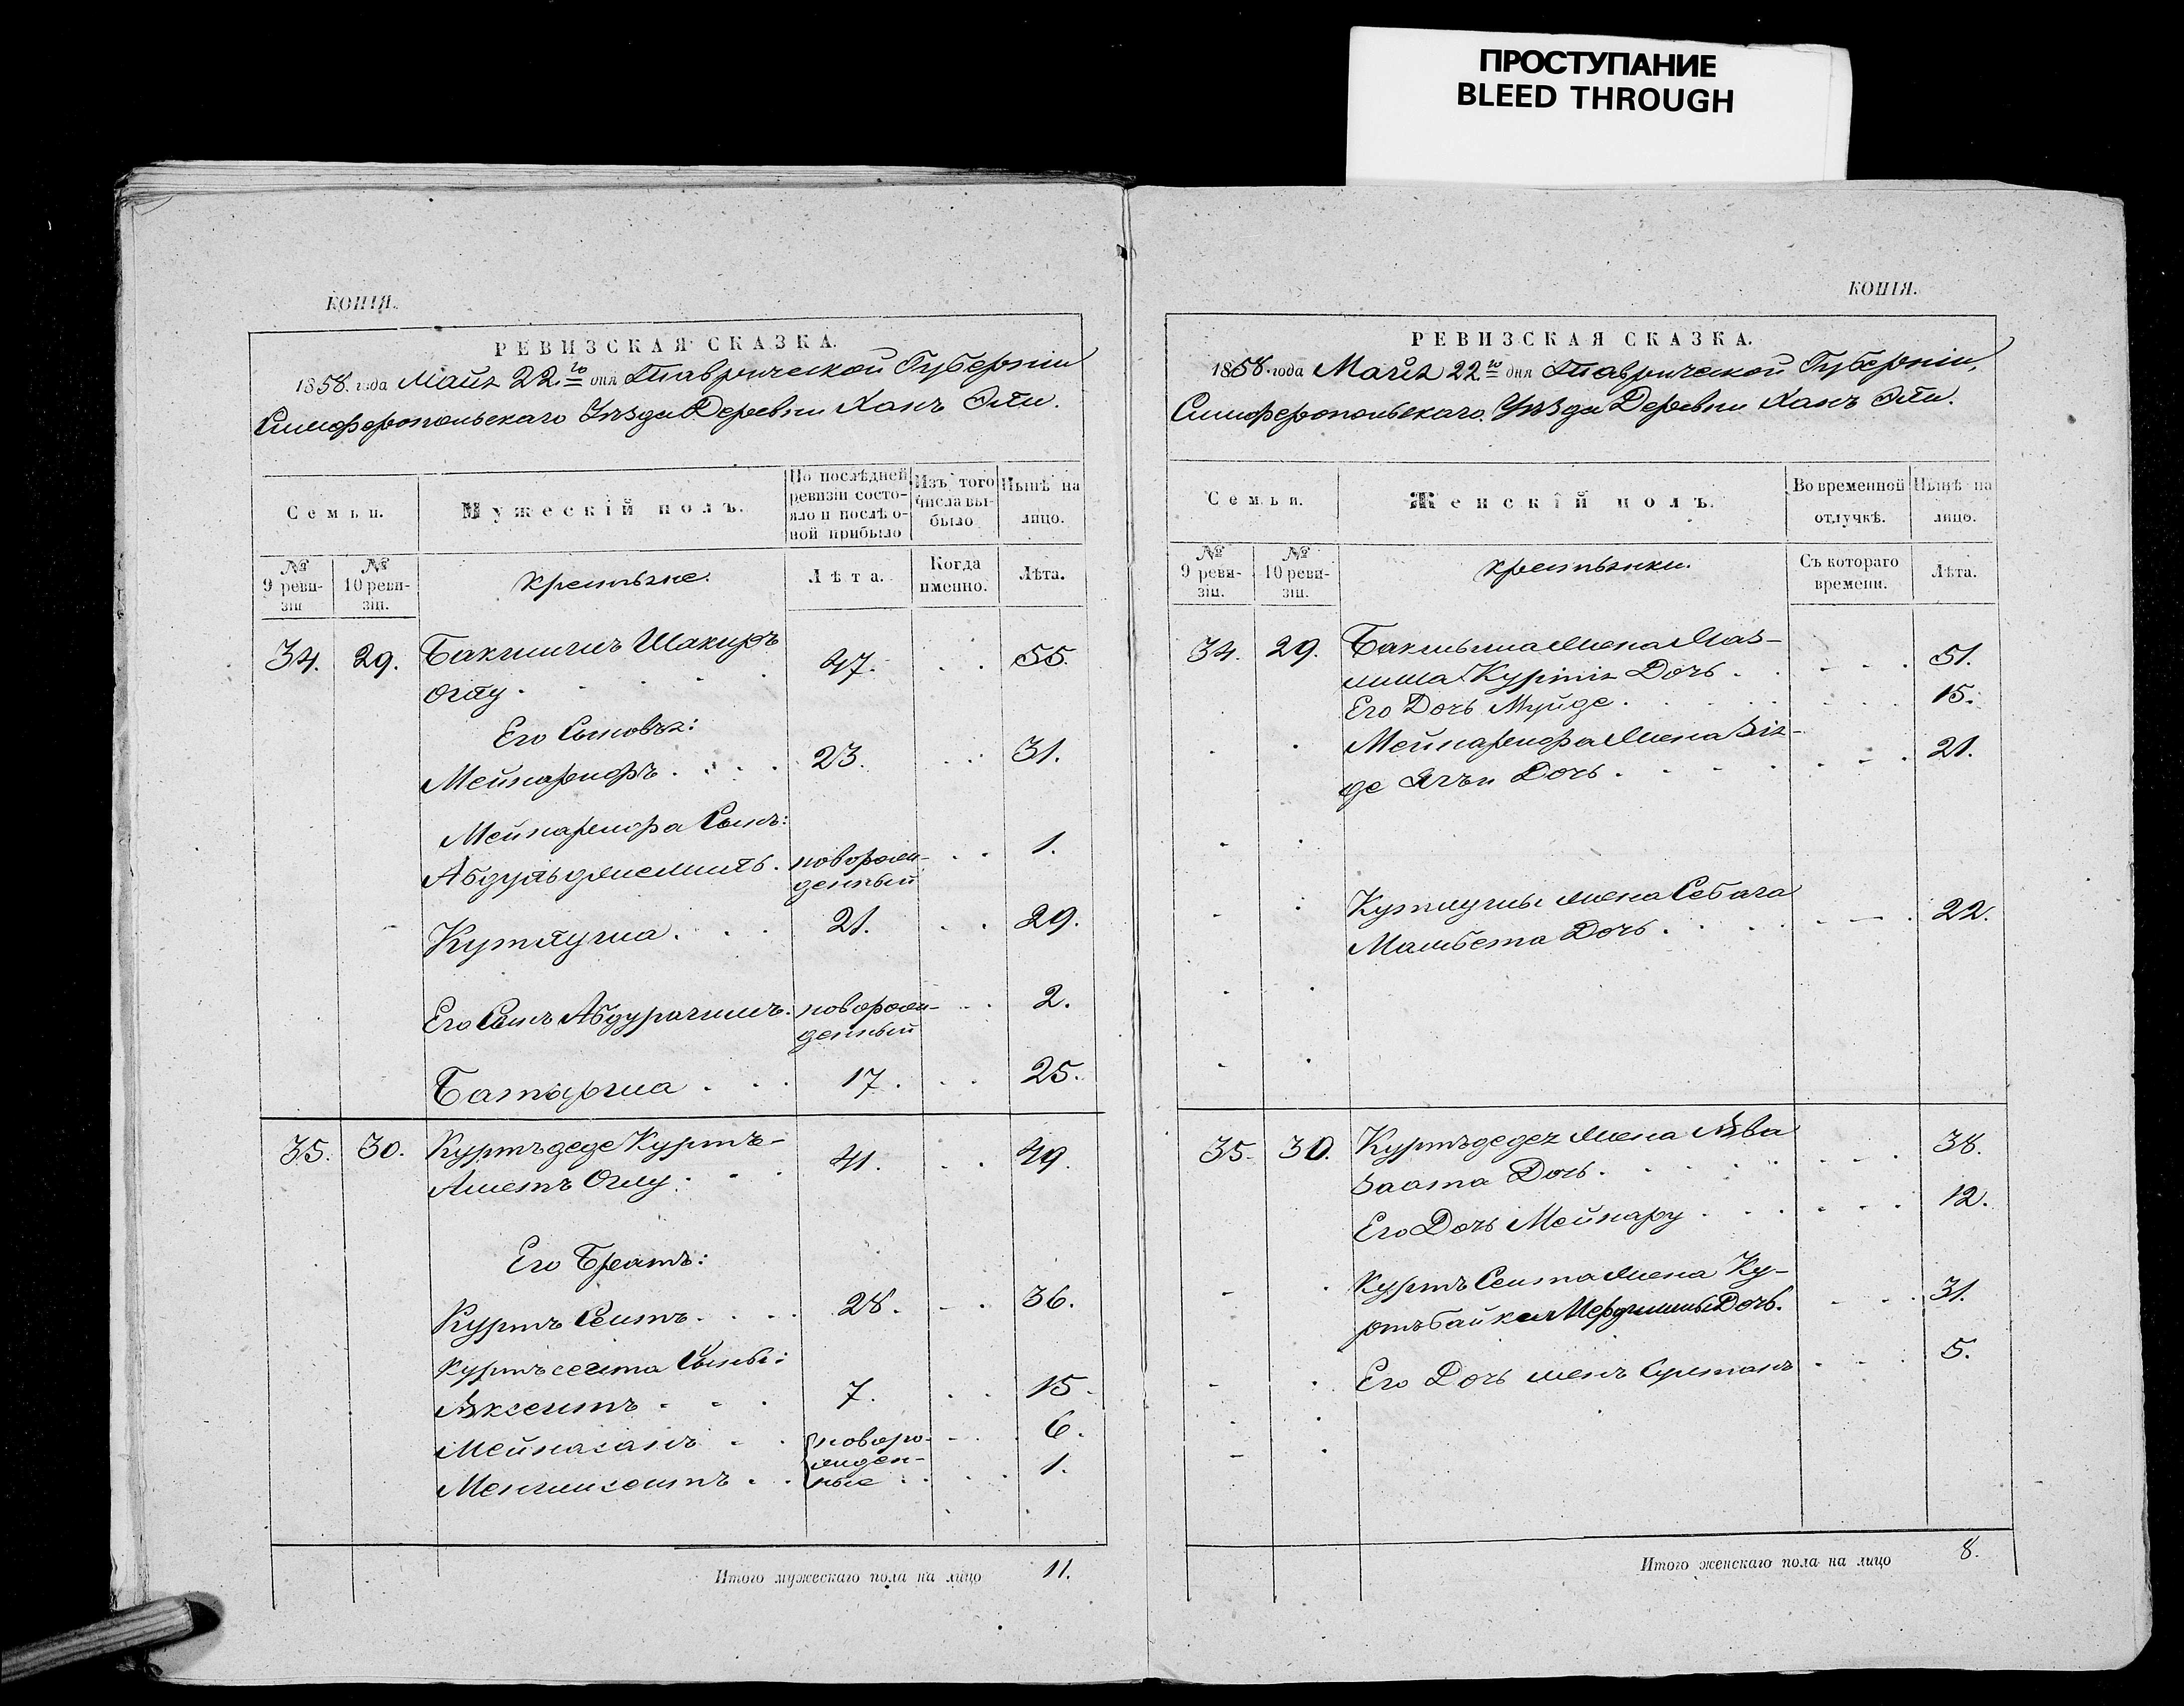 ПРОСТУПАНИЕ
BLEED THROUGH
КОПІЯ.
РЕВИЗСКАЯ СКАЗКА.
1858. года Майя 22го дня Таврической Губерніи
Симферопольскаго Уѣзда Деревни Ханъ Эли.
Семьи.
Мужескій полъ.
По послѣдней
ревизіи состо-
яло и послѣ о-
ной прибыло
Изъ того
числа вы-
было
Нынѣ на
лицо.
№
9 реви-
зіи
№
10 реви-
зіи.
крестьяне.
Лѣта.
Когда
именно.
Лѣта.
34. 29. Бакшишъ Шакиръ
оглу. 47. 55.
Его Сыновья:
Мейнарифъ. 23. 31.
Мейнарифа Сынъ:
Абдульджемиль. новорож-
денный 1.
Кутлуша. 21. 29.
Его Сынъ Абдурагимъ. новорож-
денный 2.
Батырша 17. 25.
35. 30. Куртъдеде Куртъ-
Аметъ Оглу. 41. 49.
Его Братъ:
Куртъ Сеитъ. 28. 36.
Куртъ сеита Сыны:
Яксеитъ 7. 15.
Мейнасанъ новоро- 6.
жден-
Менглисеитъ ные 1.
Итого мужескаго пола на лицо 11.
КОПІЯ.
РЕВИЗСКАЯ СКАЗКА.
1858. года Майя 22го дня Таврической Губерніи,
Симферопольскаго Уѣзда Деревни Ханъ Эли.
Семьи.
Женскій полъ.
Во временной
отлучкѣ.
Нынѣ на
лицо.
№
9 реви-
зіи.
№
10 реви-
зіи.
крестьянки.
Съ котораго
времени.
Лѣта.
34. 29. Бакшыша Жена
Дочь. 51.
Его Дочь 15.
Мейнарифа Жена Зія-
де Ягъи Дочь. 21.
Кутлушы жена
Мамбета Дочь. 22.
35. 30. Куртъдедея жена
Дочь. 38.
Его Дочь Мейнару 12.
Куртъ Сеита Жена Ку-
ртъбайке Дочь. 31.
Его Дочь Султанъ 5.
Итого женскаго пола на лицо 8.